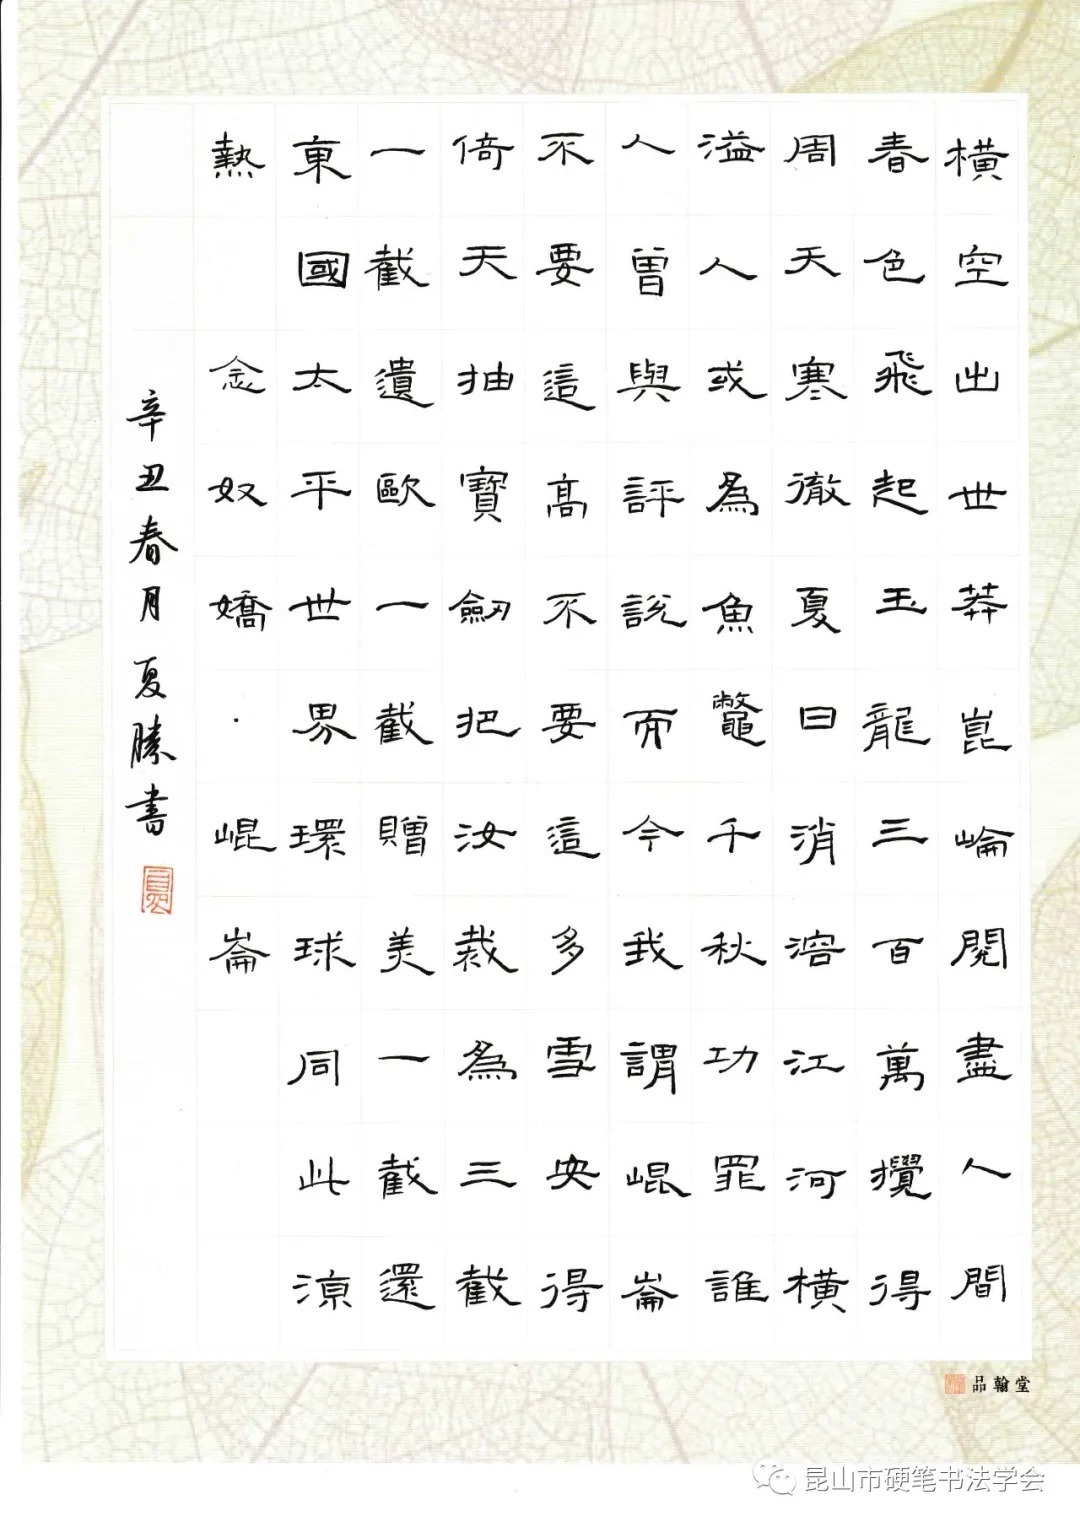 橫空出世莽崑崘閱盡人間
春色飛起玉龍三百萬攪得
周天寒徹夏日消溶江河橫
溢人或為魚鱉千秋功罪誰
人曾與評說而今我謂崐崙
不要這高不要這多雪安得
倚天抽寶劒把汝裁為三截
一截遺歐一截贈美一截還
東國太平世界環球同此涼
熱 念奴嬌·崐崙
辛丑春月夏勝書
品翰堂
昆山市硬笔书法学会